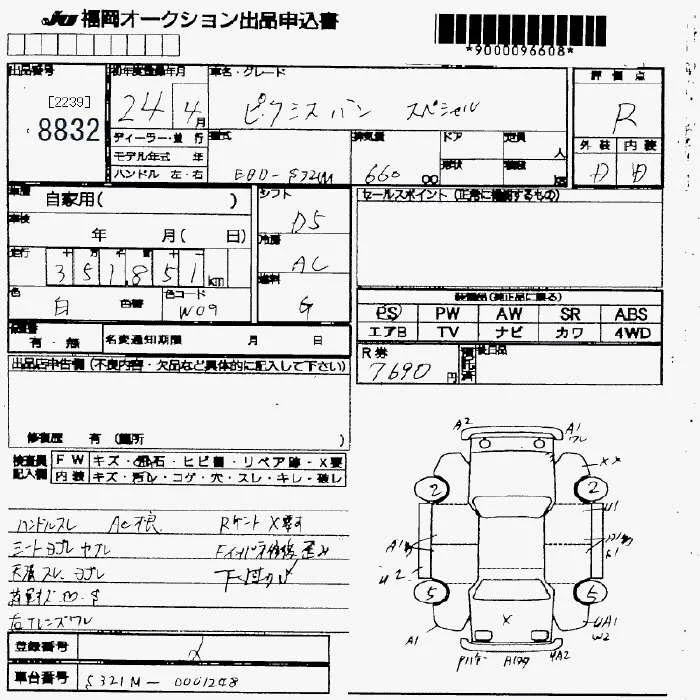 JU 福岡オークション出品申込書
*9000096608*
出品番号 [2239] 8832
初年度登録年月 24 4月
車名・グレード ピクシスバン スペシャル
評価点 R
外装 内装 D D
ディーラー・並行
モデル年式 年
ハンドル 左・右
型式 EBD-S321M
排気量 660 cc
ドア
形状
定員 人
積載 kg
車歴 自家用( )
車検 年 月( 日)
走行 351,851 km
色 白 色替
色コード W09
シフト D5
冷房 AC
燃料 G
セールスポイント (正常に機能するもの)
装備品(純正品に限る)
PS PW AW SR ABS
エアB TV ナビ カワ 4WD
保証書 有・無
名変通知期限 月 日
R券 7690円
預託済
後日品
出品店申告欄 (不良内容・欠品など具体的に記入して下さい)
修復歴 有 (箇所 )
検査員記入欄
FW キズ・飛石・ヒビ割・リペア跡・X要
内装 キズ・汚レ・コゲ・穴・スレ・キレ・破レ
ハンドルスレ AC根
シートヨゴレ ヤブレ
天張スレ、ヨゴレ
下回サビ
右Tレンズワレ
A2 A1 ワレ
2 2
XX
U1
A1
U2
5 5
X
A1
UA1 W2
UA2
登録番号
車台番号 S321M-0001248